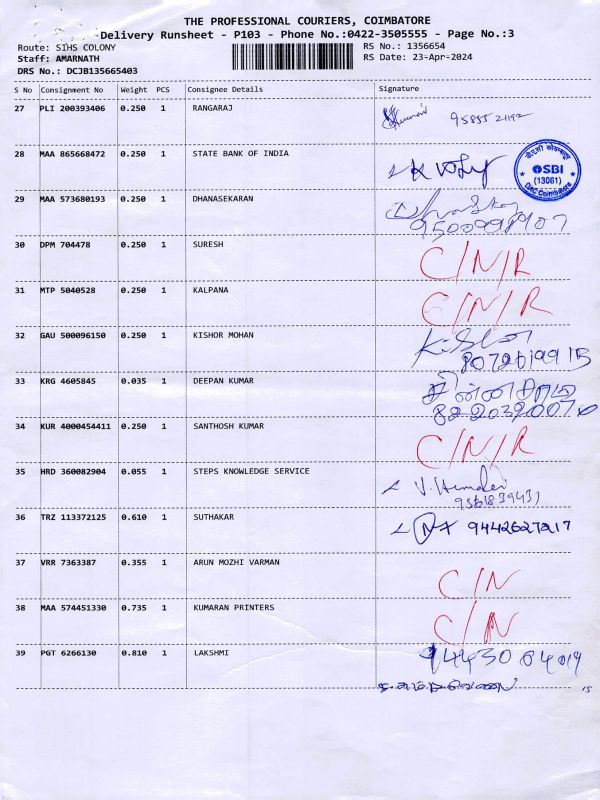 THE PROFESSIONAL COURIERS, COIMBATORE
Delivery Runsheet - P103 - Phone No.:0422-3505555 - Page No.:3
Route: SIHS COLONY RS No.: 1356654
Staff: AMARNATH RS Date: 23-Apr-2024
DRS No.: DCJB135665403
S No Consignment No Weight PCS Consignee Details Signature
27 PLI 200393406 0.250 1 RANGARAJ
28 MAA 865668472 0.250 1 STATE BANK OF INDIA
SBI
(13061)
DAC Coimbatore
29 MAA 573680193 0.250 1 DHANASEKARAN
30 DPM 704478 0.250 1 SURESH C/N/R
31 MTP 5040528 0.250 1 KALPANA C/N/R
32 GAU 500096150 0.250 1 KISHOR MOHAN
33 KRG 4605845 0.035 1 DEEPAN KUMAR
34 KUR 4000454411 0.250 1 SANTHOSH KUMAR C/N/R
35 HRD 360082904 0.055 1 STEPS KNOWLEDGE SERVICE
36 TRZ 113372125 0.610 1 SUTHAKAR 9442627217
37 VRR 7363387 0.355 1 ARUN MOZHI VARMAN C/N
38 MAA 574451330 0.735 1 KUMARAN PRINTERS C/N
39 PGT 6266130 0.810 1 LAKSHMI
15